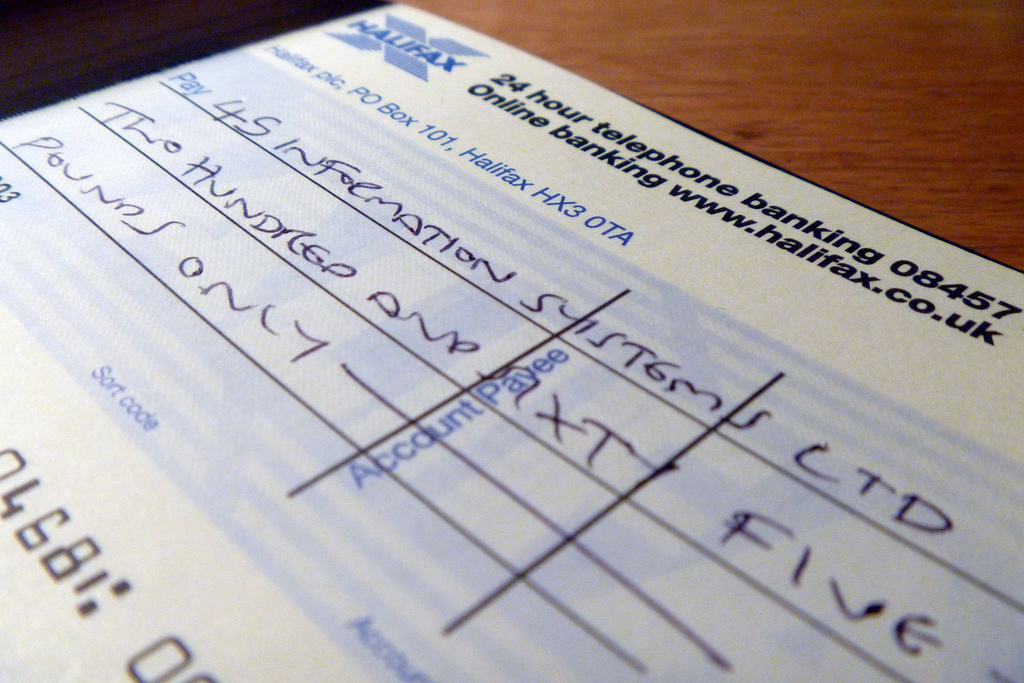 HALIFAX
24 hour telephone banking 08457
Online banking www.halifax.co.uk
Halifax plc, PO Box 101, Halifax HX3 0TA
Pay 4S INFORMATION SYSTEMS LTD
TWO HUNDRED AND SIXTY FIVE
POUNDS ONLY
Account Payee
03
Sort code
Accoun
04681